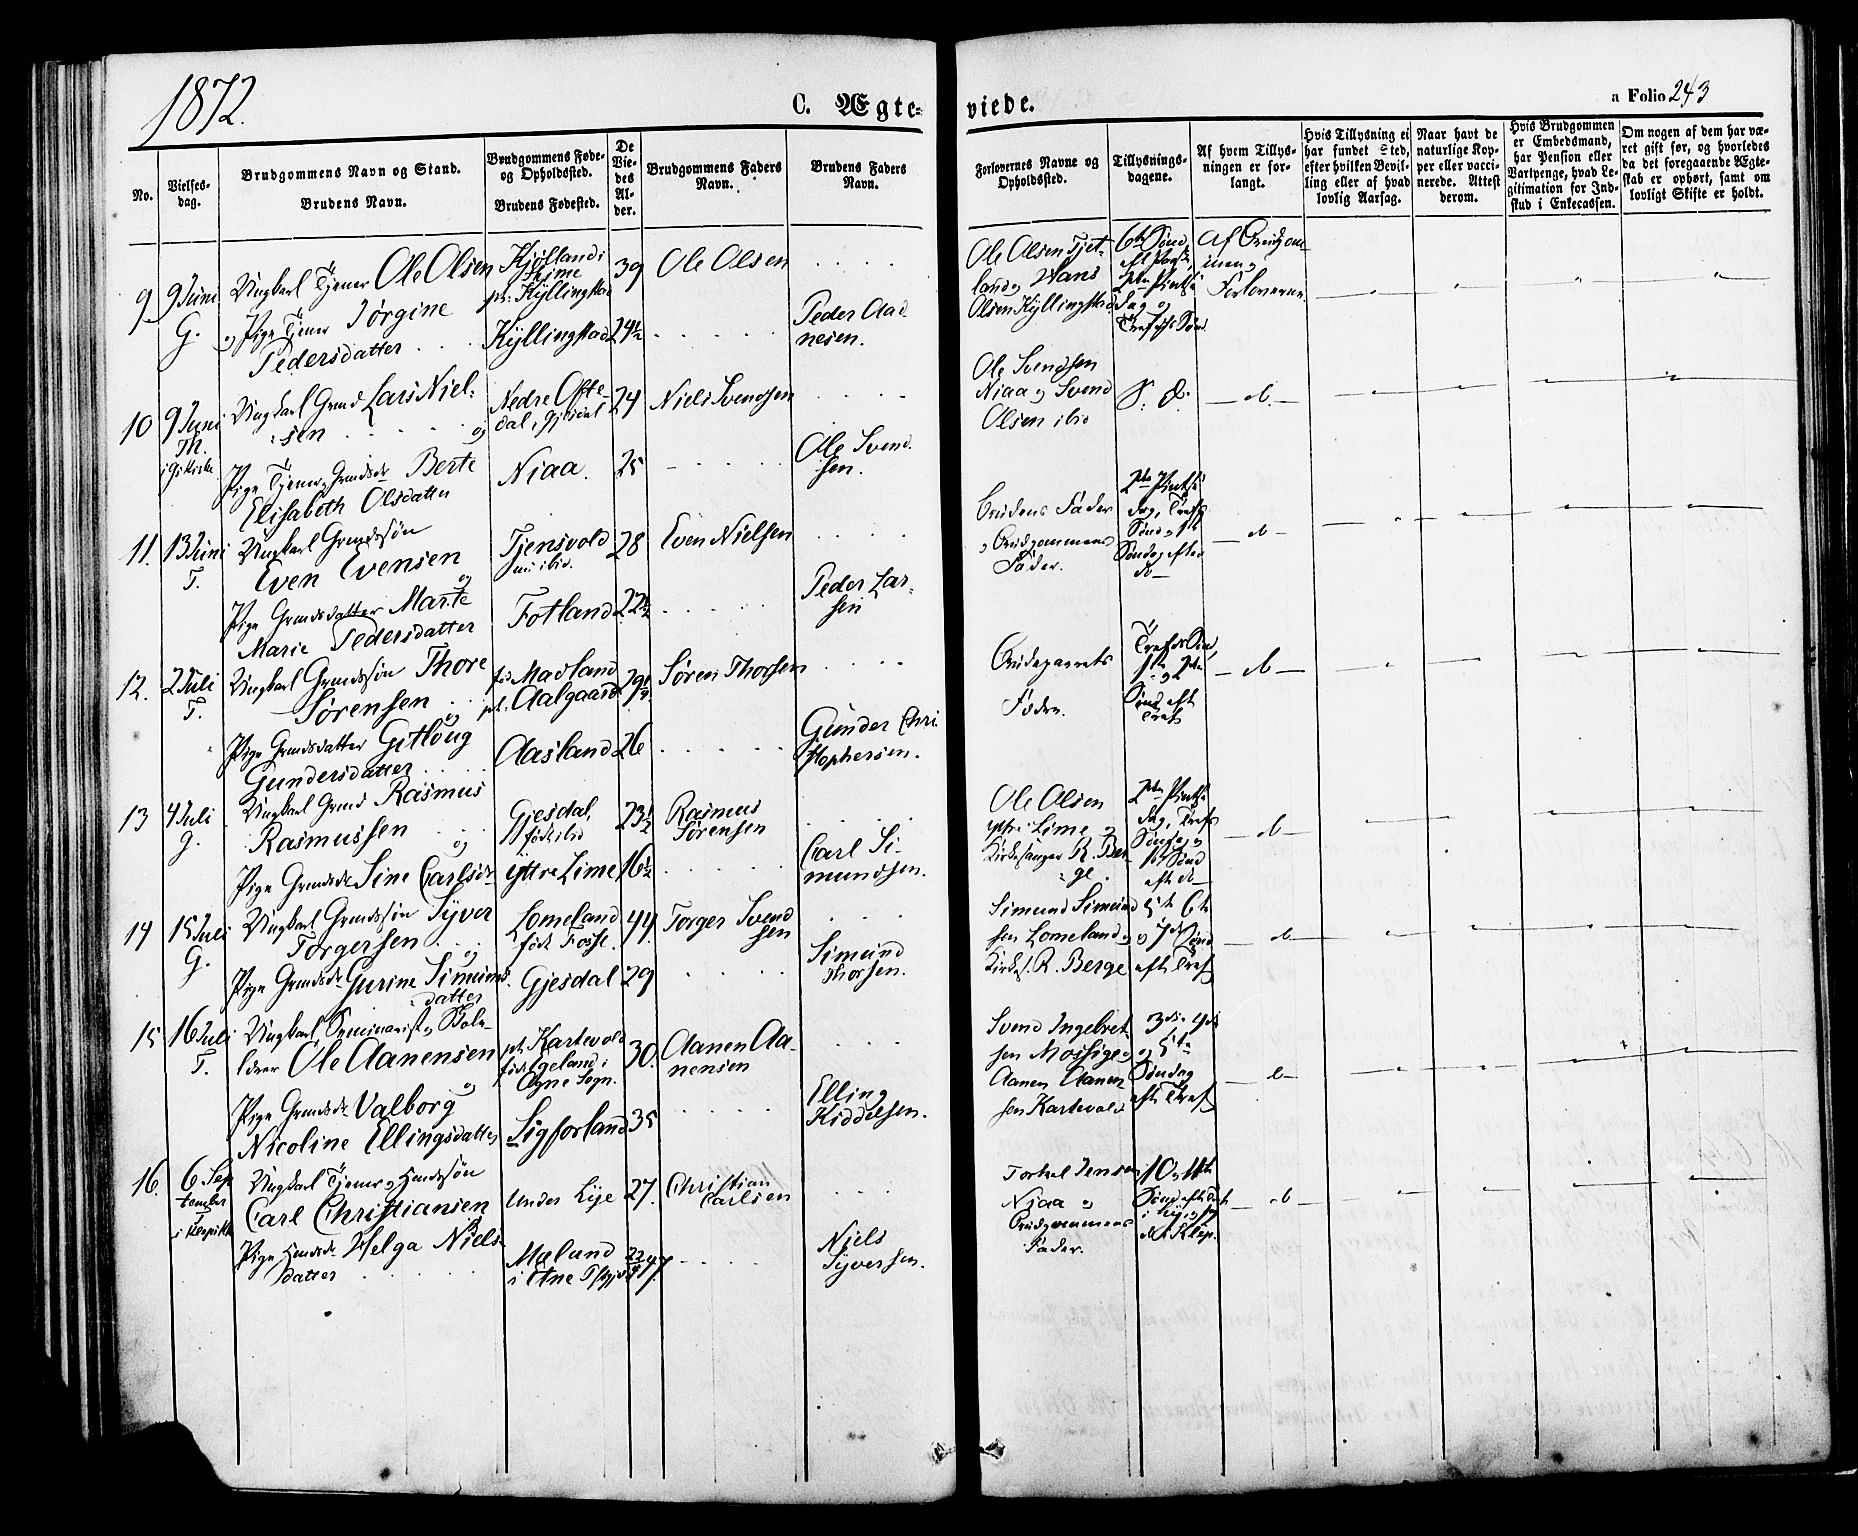 1872.
C. Ægte-
viede.
a Folio 243
No.
Vielses-
dag.
Brudgommens Navn og Stand.
Brudens Navn.
Brudgommens Føde-
og Opholdssted.
Brudens Fødested.
De
Vie-
des
Al-
der.
Brudgommens Faders
Navn.
Brudens Faders
Navn.
Forlovernes Navne og
Opholdssted.
Tillysnings-
dagene.
Af hvem Tillys-
ningen er for-
langt.
Hvis Tillysning ei
har fundet Sted,
efter hvilken Bevil-
ling eller af hvad
lovlig Aarsag.
Naar havt de
naturlige Kop-
per eller vacci-
nerede. Attest
derom.
Hvis Brudgommen
er Embedsmand,
har Pension eller
Vartpenge, hvad Le-
gitimation for Ind-
skud i Enkecassen.
Om nogen af dem har væ-
ret gift før, og hvorledes
da det foregaaende Ægte-
skab er ophørt, samt om
lovligt Skifte er holdt.
9
9 Juni
G.
Ungkarl Tjener Ole Olsen
og Pige Tjener Jørgine
Pedersdatter
Kyllingstad
39
24½
Ole Olsen
Peder Aad
nesen.
Ole Olsen Tjet-
land og Hans
Olsen Kyllingstad
Af Brudgom-
men og
Forloverne
10
9 Juni
Th.
Ungkarl Grmd Lars Niel-
sen og
Pige Tjener Grmdsdr Berte
Elisabeth Olsdatter
Nedre Ofte-
dal i Gjesdal
Niaa.
24
25
Niels Svendsen
Ole Svend
sen.
Ole Svendsen
Niaa og Svend
Olsen ibid
S. D.
d.
11.
13 Juni
T.
Ungkarl Grmdssøn
Even Evensen
og
Pige Grmdsdatter Marte
Marie Pedersdatter
Tjensvold
Fotland
28
22½
Even Nielsen
Peder Lar-
sen
Brudens Fader
og Brudgommens
Fader.
d
12.
2 Juli
T.
Ungkarl Grmdssøn Thore
Sørensen og
Pige Grmdsdatter Gitloug
Gundersdatter
fød Madland
pt. Aalgaard
Aasland
29½
26
Søren Thorsen
Gunder Chri
stophersen.
Brudeparrets
Fædre.
d
13
4 Juli
G.
Ungkarl Grmd Rasmus
Rasmussen
og
Pige Grmdsdr Sine Carlsdr
Gjesdal,
født ibid
Yttre Lime
23½
16½
Rasmus
Sørensen
Carl Si-
mundsen.
Ole Olsen
yttre Lime og
Kirkesanger R. Ber-
ge.
d
14
15 Juli
G.
Ungkarl Grmdssøn Syver
Torgersen og
Pige Grmdsdr Gurine Simunds
datter
Lomeland
født Fosse.
Gjesdal
44
29
Torger Svend
sen
Simund
Thorsen.
Simund Simund
sen Lomeland og
Kirkes. R. Berge
5te 6te
og 7de Sønd
efter Tref
d
15
16 Juli
T.
Ungkarl Seminarist og Skole-
lærer Ole Aanensen
og
Pige Grmdsdr Valborg
Nicoline Ellingsdatter
pt. Kartevold
født Egeland i
Ogne Sogn.
Sigforland
30.
35
Aanen Aa-
nensen
Elling
Kiddelsen.
Svend Ingebret
sen Mossige og
Aanen Aanen
sen Kartevold
3die 4de
og 5te
Søndag
efter Tref
d
16.
6 Sep
tember
T
Ungkarl Tjener og Huusmssøn
Carl Christiansen
Pige Huusmdr Helga Niels-
datter
Under Lye
Mælund
i Etne
27.
Christian
Carlsen
Niels
Syversen.
Torkel Jensen
Niaa og
Brudgommens
Fader.
10 og 11te
d